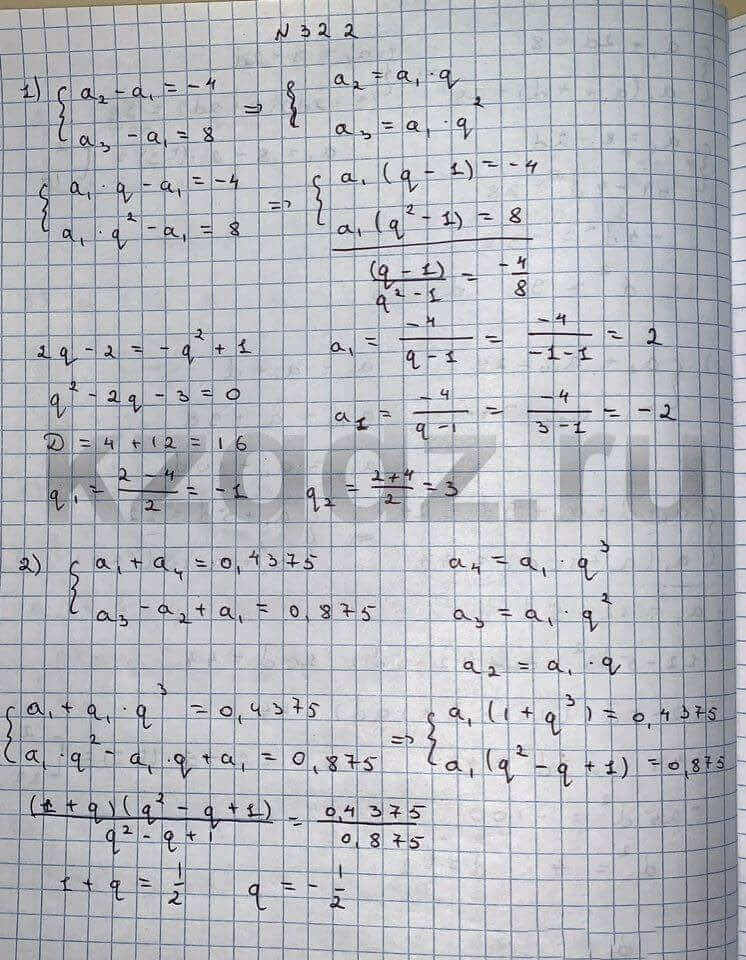 N 322
1) { a₂ - a₁ = -4
a₃ - a₁ = 8 => { a₂ = a₁ · q
a₃ = a₁ · q²
{ a₁ · q - a₁ = -4
a₁ · q² - a₁ = 8 => { a₁ (q - 1) = -4
a₁ (q² - 1) = 8
(q - 1) / (q² - 1) = -4/8
2q - 2 = -q² + 1
q² - 2q - 3 = 0
D = 4 + 12 = 16
q₁ = (2 - 4)/2 = -1 q₂ = (2 + 4)/2 = 3
a₁ = -4/(q - 1) = -4/(-1 - 1) = 2
a₁ = -4/(q - 1) = -4/(3 - 1) = -2
kzgdz.ru
2) { a₁ + a₄ = 0,4375
a₃ - a₂ + a₁ = 0,875
a₄ = a₁ · q³
a₃ = a₁ · q²
a₂ = a₁ · q
{ a₁ + a₁ · q³ = 0,4375
a₁ · q² - a₁ · q + a₁ = 0,875 => { a₁ (1 + q³) = 0,4375
a₁ (q² - q + 1) = 0,875
(1 + q)(q² - q + 1) / (q² - q + 1) = 0,4375/0,875
1 + q = 1/2 q = -1/2